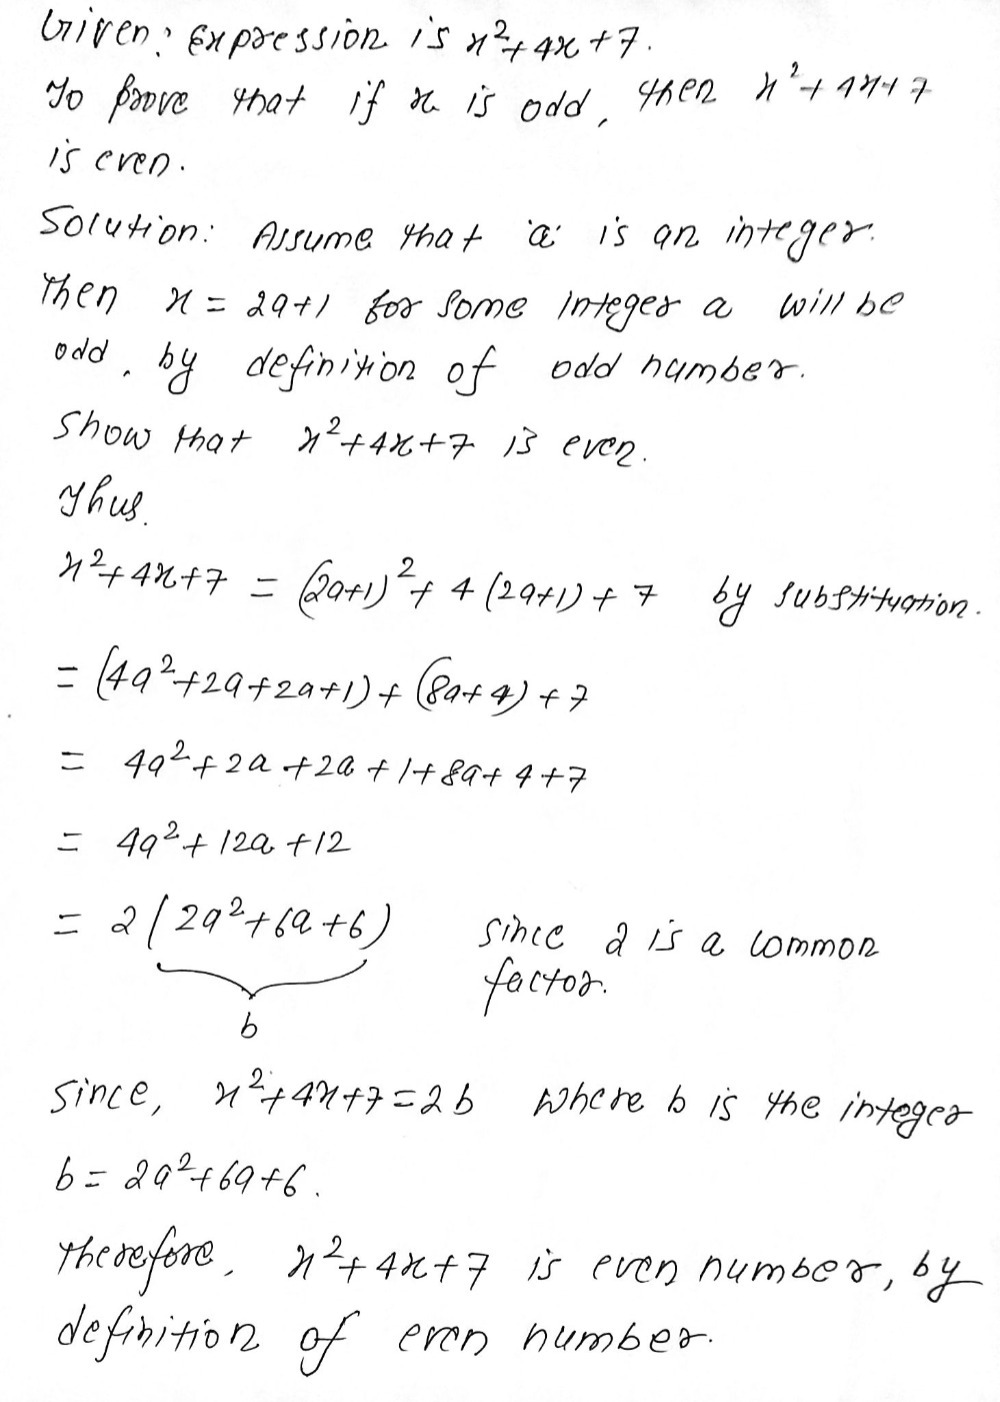 Given: Expression is x²+4x+7.
To prove that if x is odd, then x²+4x+7
is even.
Solution: Assume that 'a' is an integer.
Then x = 2a+1 for some integer a will be
odd, by definition of odd number.
Show that x²+4x+7 is even.
Thus.
x²+4x+7 = (2a+1)²+ 4(2a+1) + 7 by substituation.
= (4a²+2a+2a+1) + (8a+4) + 7
= 4a²+2a+2a+1+8a+4+7
= 4a²+12a+12
= 2(2a²+6a+6) since 2 is a common
factor.
b
Since, x²+4x+7=2b where b is the integer
b= 2a²+6a+6.
Therefore, x²+4x+7 is even number, by
definition of even number.